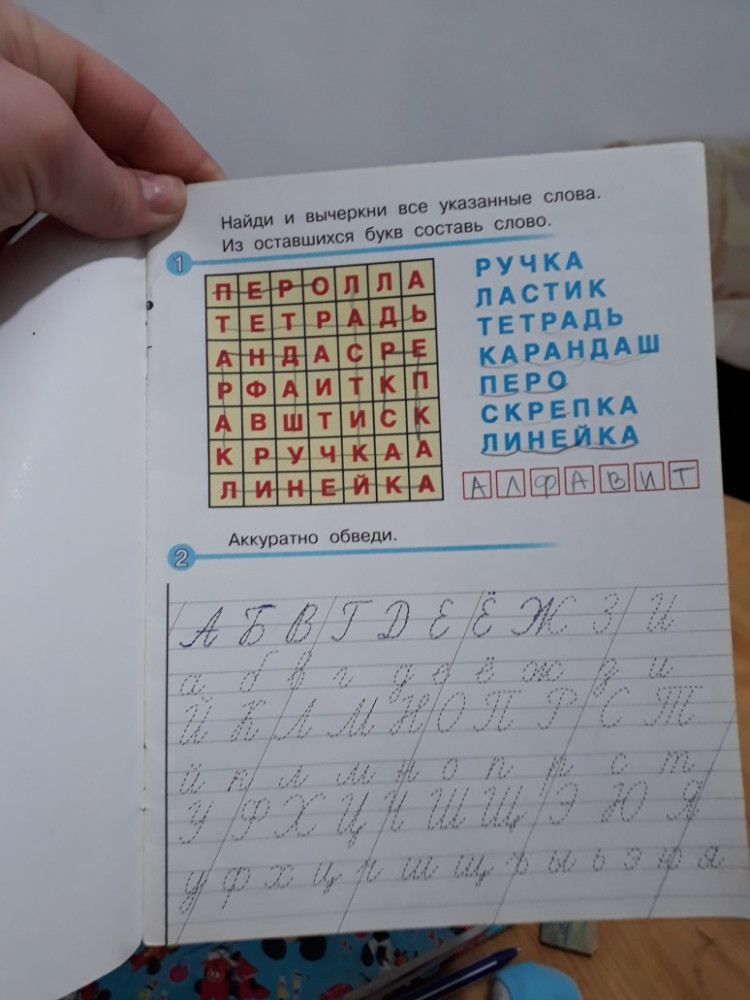 Найди и вычеркни все указанные слова.
Из оставшихся букв составь слово.
1
П Е Р О Л Л А
Т Е Т Р А Д Ь
А Н Д А С Р Е
Р Ф А И Т К П
А В Ш Т И С К
К Р У Ч К А А
Л И Н Е Й К А
РУЧКА
ЛАСТИК
ТЕТРАДЬ
КАРАНДАШ
ПЕРО
СКРЕПКА
ЛИНЕЙКА
АЛФАВИТ
2
Аккуратно обведи.
А Б В Г Д Е Ё Ж З И
а б в г д е ё ж з и
Й К Л М Н О П Р С Т
й к л м н о п р с т
У Ф Х Ц Ч Ш Щ Э Ю Я
у ф х ц ч ш щ ъ ы ь э ю я